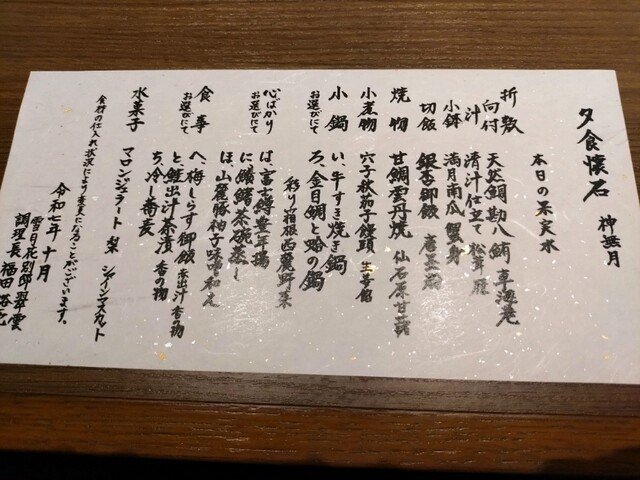 夕食懐石 神無月
本日の果実水
折敷
向付 天然鯛 勘八 鮪 車海老
汁 清汁仕立て 松茸 鱧
小鉢 満月南瓜 蟹身
切飯 銀杏御飯 唐墨
焼物 甘鯛雲丹焼 仙石原甘藷
小煮物 穴子秋茄子饅頭 生姜餡
小鍋 い、牛すき焼き鍋
お選びにて ろ、金目鯛と蛤の鍋
彩り箱根西麓野菜
心ばかり は、富士鱒豊年揚
お選びにて に、鱶鰭茶碗蒸し
ほ、山麓豚柚子味噌和え
食事 へ、梅しらす御飯 赤出汁 香の物
お選びにて と、鮭出汁茶漬 香の物
ち、冷し蕎麦
水菓子 マロンジェラート 梨 シャインマスカット
食材の仕入れ状況により変更になることがございます。
令和七年十月
雪月花別邸翠雲
調理長 福田